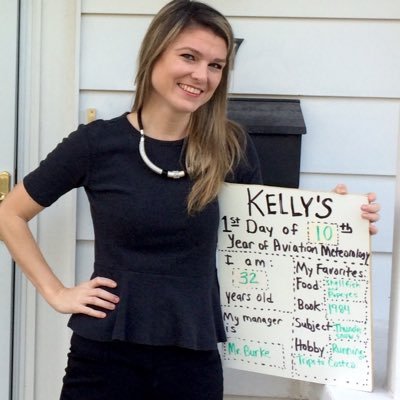 KELLY'S
1st Day of 10th
Year of Aviation Meteorology
I am
32
years old
My manager
is
Mr. Burke
My Favorites:
Food: Shellfish
Popeyes
Book: 1984
Subject: Thunder
Hobby: Running
Trips to Costco